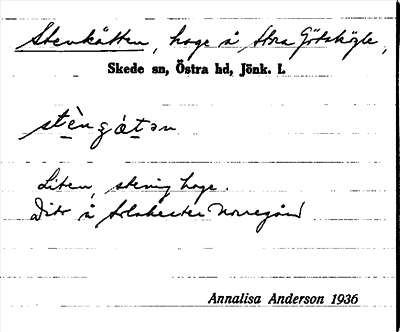 Stenkåtten, hage å Stora Götahögle,
Skede sn, Östra hd, Jönk. l.
stèngátən
Liten, stenig hage.
Dito å Norregård
Annalisa Anderson 1936